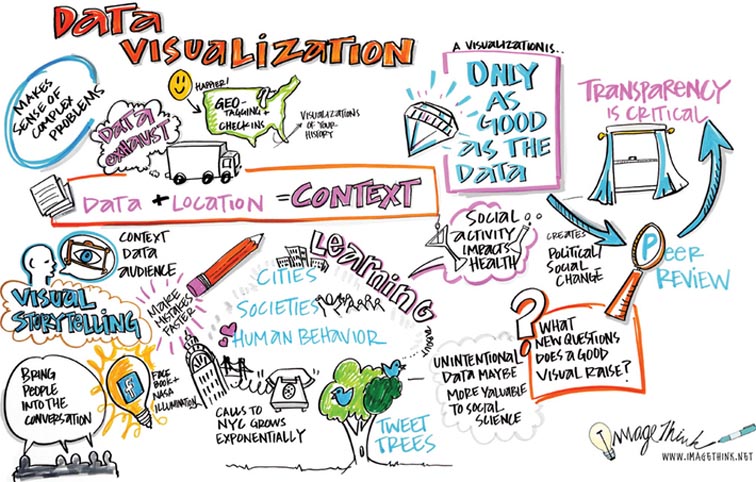 DATA
VISUALIZATION
MAKES
SENSE OF
COMPLEX
PROBLEMS
DATA
EXHAUST
HAPPIER!
GEO-
TAGGING +
CHECK INS
VISUALIZATIONS
OF YOUR
HISTORY
A VISUALIZATION IS...
ONLY
AS
GOOD
AS THE
DATA
TRANSPARENCY
IS CRITICAL
DATA + LOCATION = CONTEXT
SOCIAL
ACTIVITY
IMPACTS
HEALTH
CREATES
POLITICAL/
SOCIAL
CHANGE
PEER
REVIEW
CONTEXT
DATA
AUDIENCE
VISUAL
STORYTELLING
MAKE
MISTAKES
FASTER
LEARNING
ABOUT
CITIES
SOCIETIES
HUMAN BEHAVIOR
WHAT
NEW QUESTIONS
DOES A GOOD
VISUAL RAISE?
BRING
PEOPLE
INTO THE
CONVERSATION
f
FACE
BOOK +
NASA
ILLUMINATION
CALLS TO
NYC GROWS
EXPONENTIALLY
TWEET
TREES
UNINTENTIONAL
DATA MAYBE
MORE VALUABLE
TO SOCIAL
SCIENCE
ImageThink
WWW.IMAGETHINK.NET